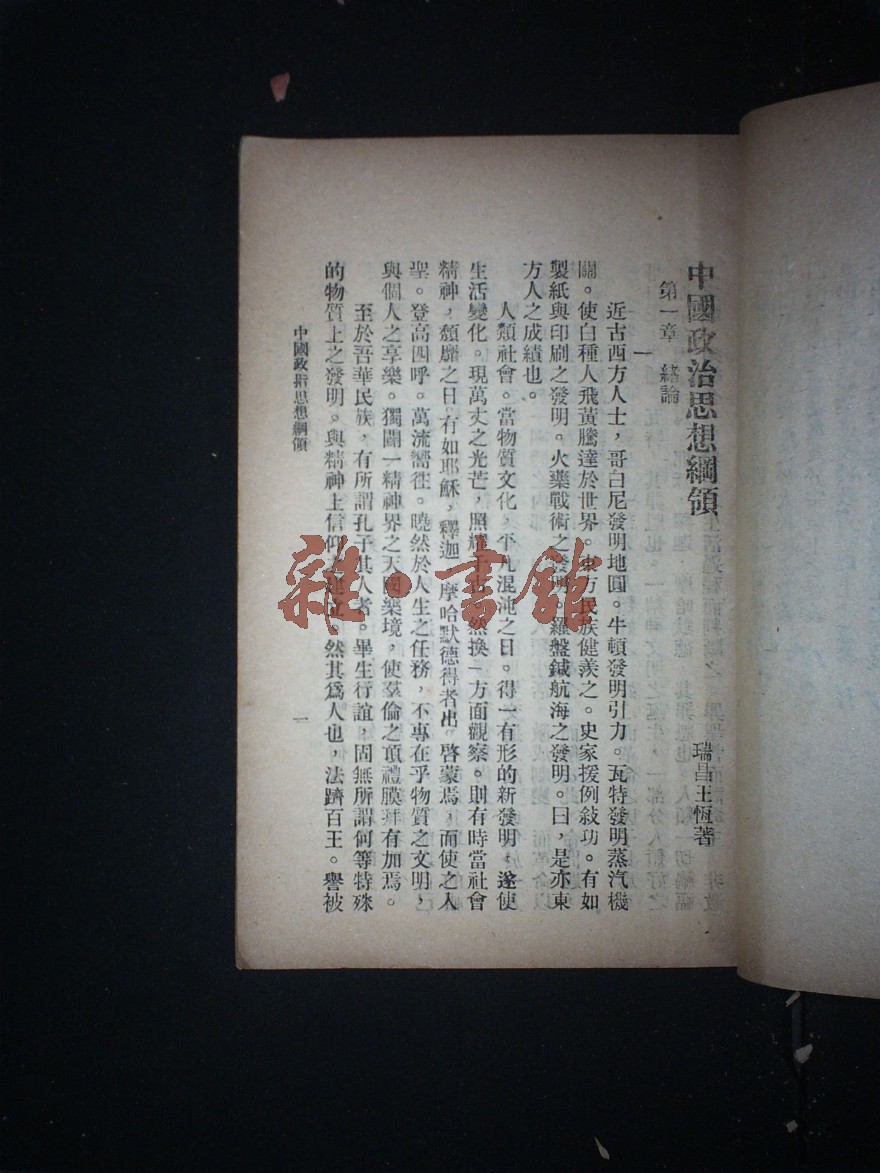 中國政治思想綱領
瑞昌王恆著
第一章 緒論
一
近古西方人士，哥白尼發明地圓。牛頓發明引力。瓦特發明蒸汽機
關。使白種人飛黃騰達於世界。東方民族健羨之。史家援例敍功。有如
製紙與印刷之發明。火藥戰術之發明。羅盤鍼航海之發明。曰，是亦東
方人之成績也。
人類社會。當物質文化，平凡混沌之日。得一有形的新發明，遂使
生活變化。現萬丈之光芒，照耀千古。然換一方面觀察。則有時當社會
精神，頹靡之日，有如耶穌，釋迦，摩哈默德得者出。啓蒙焉，而使之人
聖。登高四呼。萬流嚮往。曉然於人生之任務，不專在乎物質之文明，
與個人之享樂。獨闢一精神界之天國樂境，使羣倫之頂禮膜拜有加焉。
至於吾華民族，有所謂孔子其人者。畢生行誼，固無所謂何等特殊
的物質上之發明。與精神上信仰之建立。然其爲人也，法躋百王。譽被
中國政指思想綱領
一
雜·書館